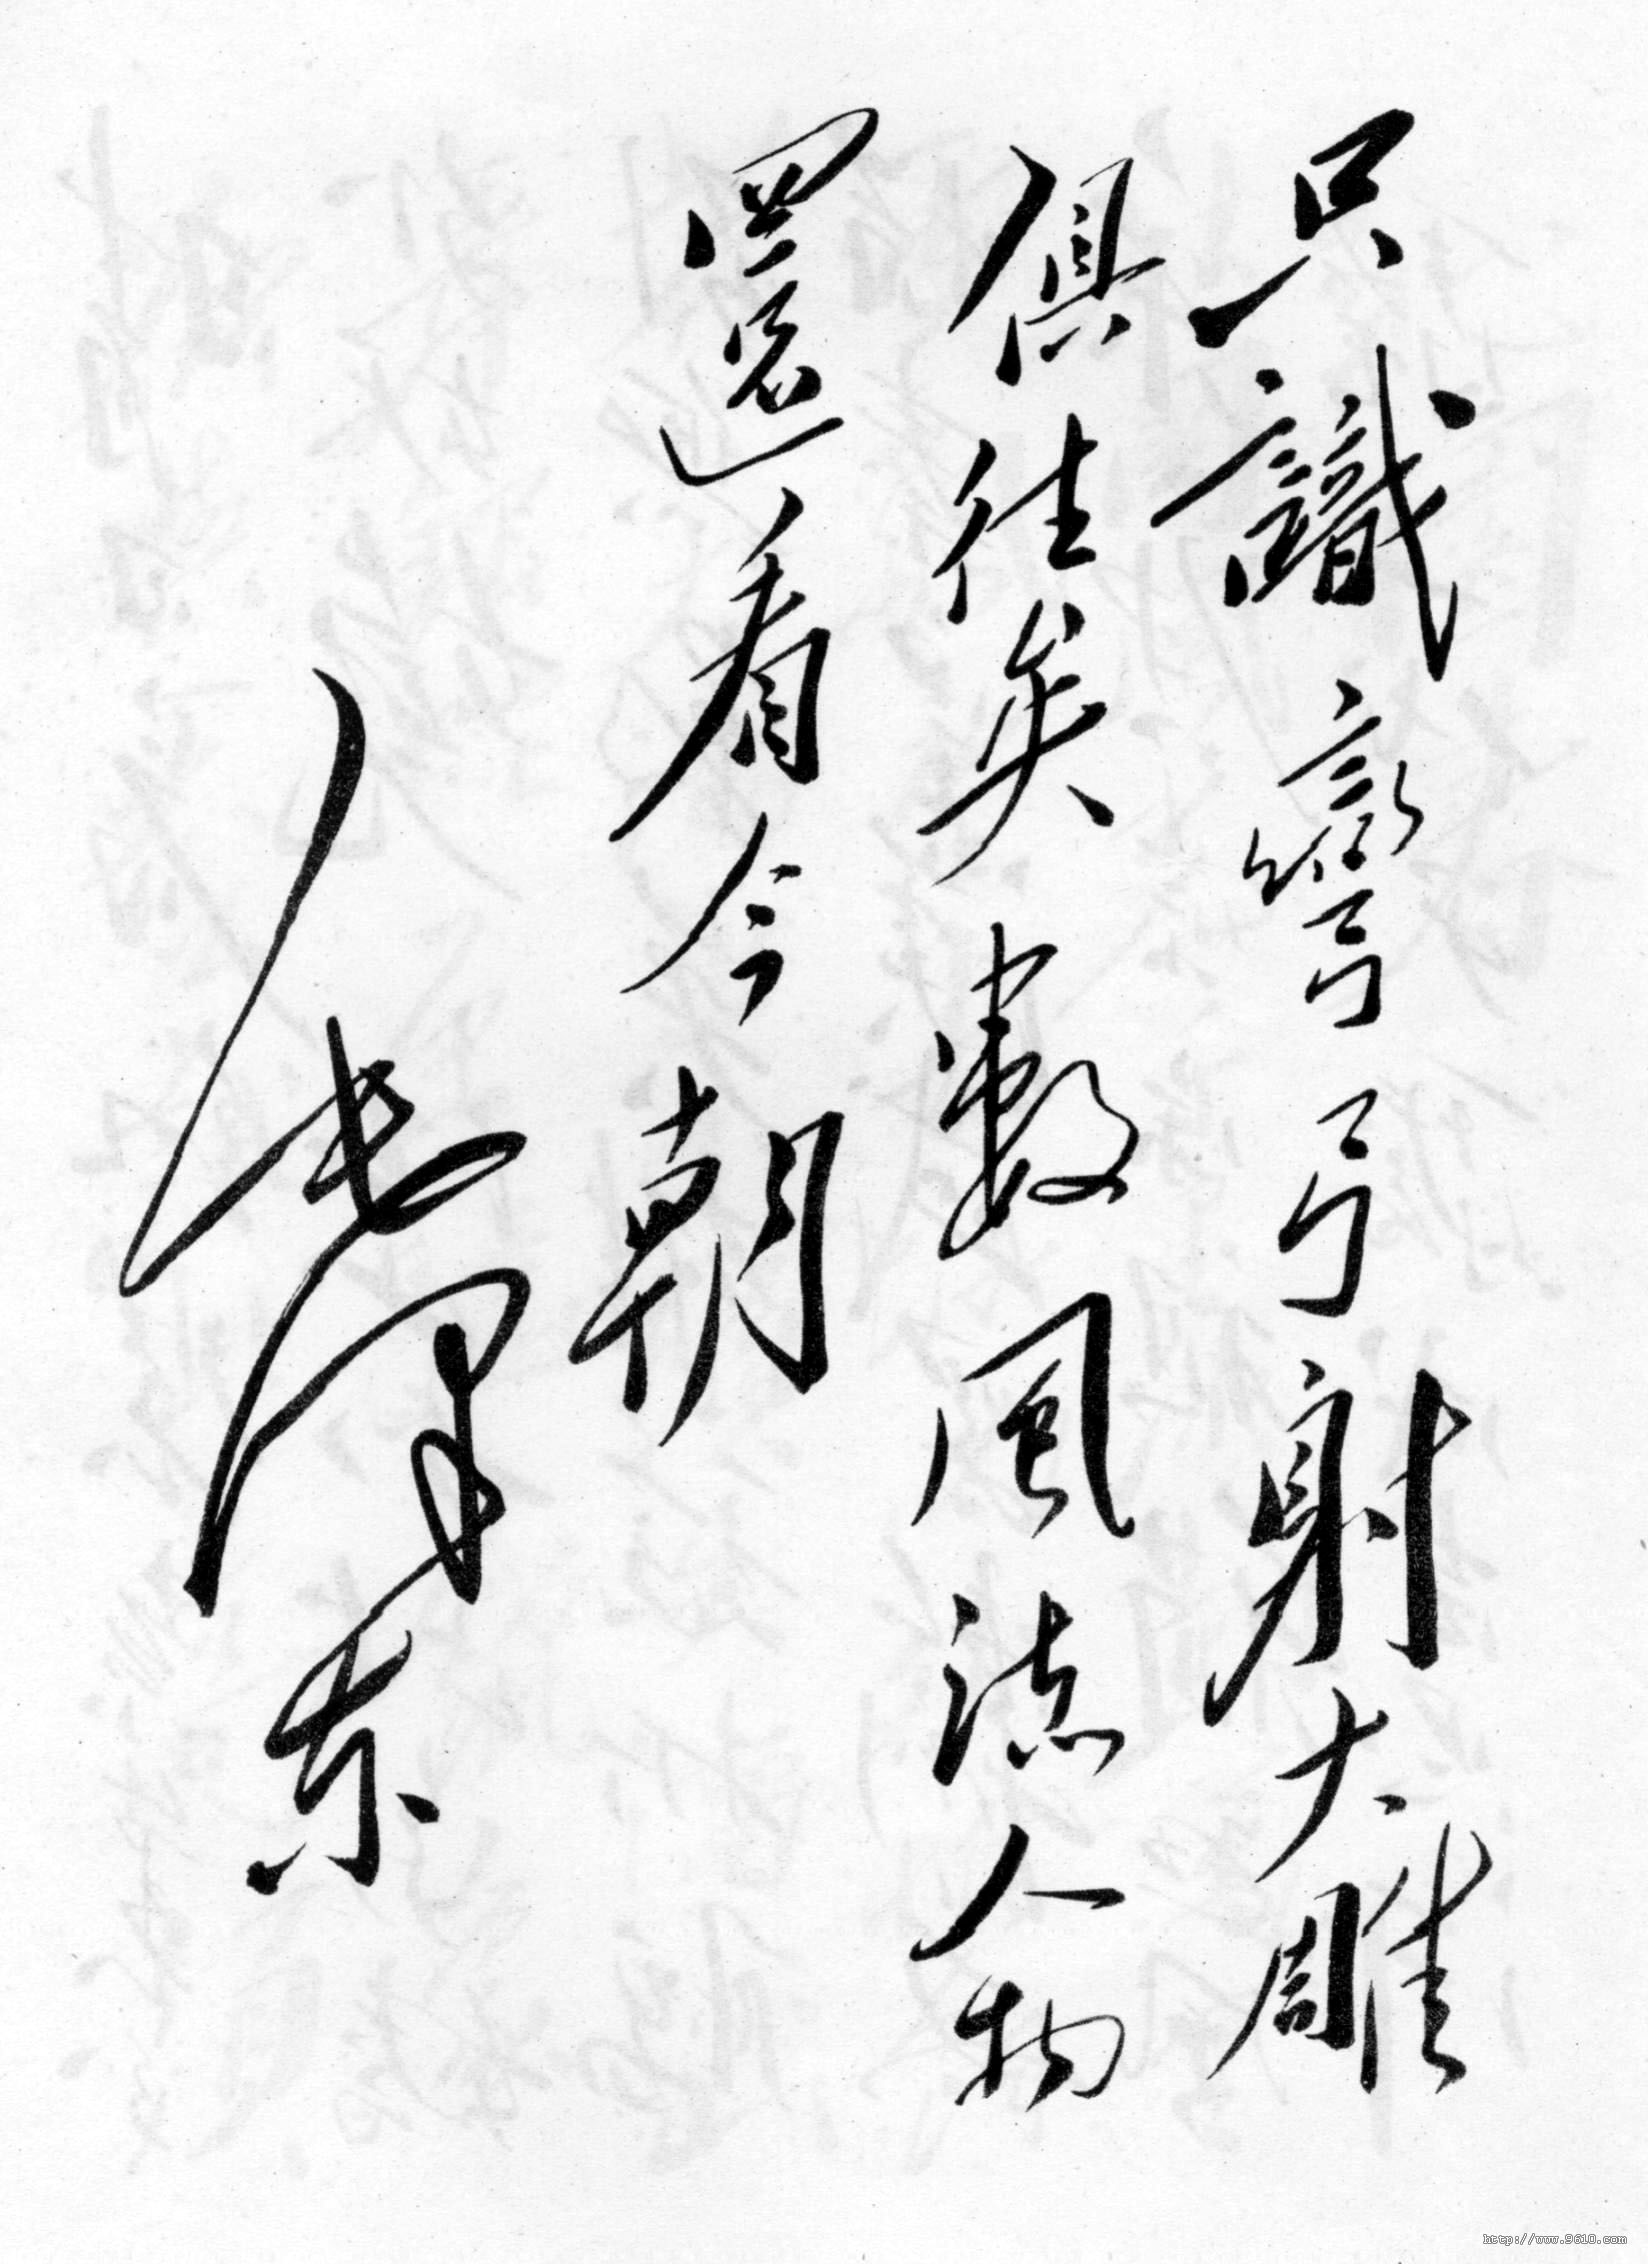 只識彎弓射大雕
俱往矣數風流人物
還看今朝
毛澤東
http://www.9610.com